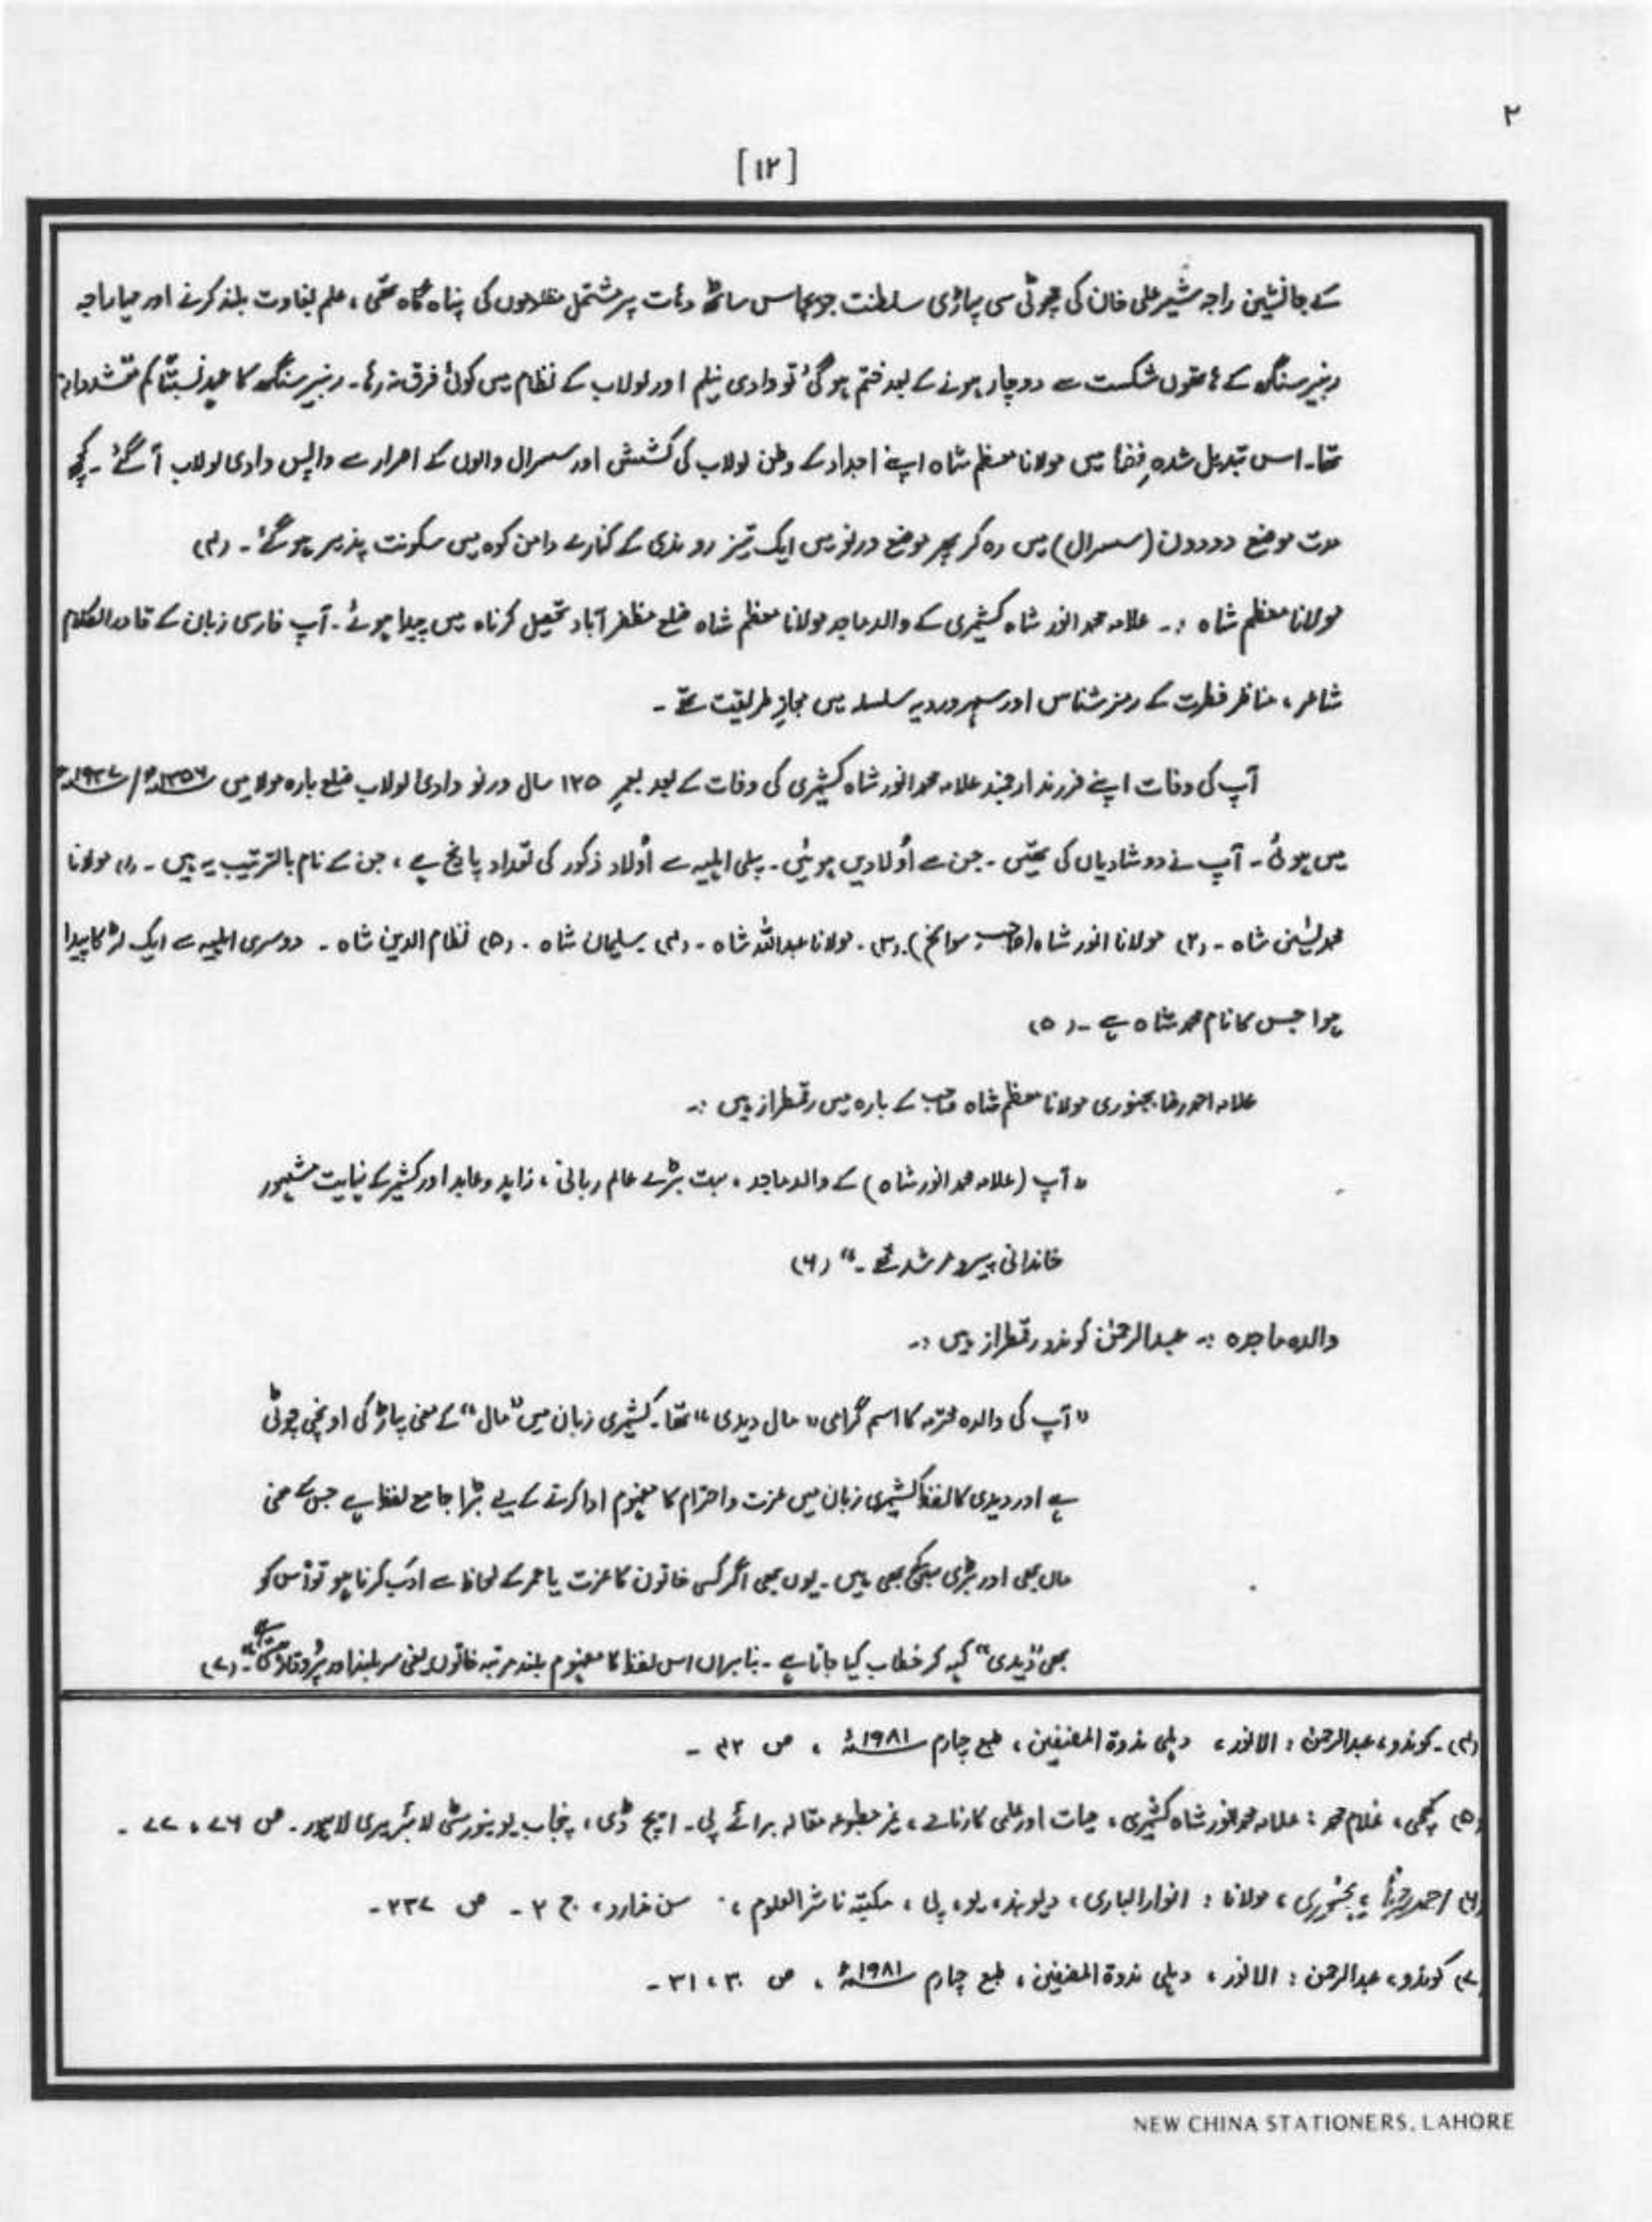 ۲
[۱۲]
کے جانشین راجہ شیر علی خان کی چھوٹی سی پہاڑی سلطنت جو پچاس ساٹھ دیہات پر مشتمل مظلوموں کی پناہ گاہ تھی، علم بغاوت بلند کرنے اور مہاراجہ
رنبیر سنگھ کے ہاتھوں شکست سے دوچار ہونے کے بعد ختم ہو گئی تو وادی نیلم اور لولاب کے نظام میں کوئی فرق نہ رہا۔ رنبیر سنگھ کا عہد نسبتاً کم متشددانہ
تھا۔ اس تبدیل شدہ فضا میں مولانا معظم شاہ اپنے اجداد کے وطن لولاب کی کشش اور سسرال والوں کے اصرار سے واپس وادی لولاب آ گئے۔ کچھ
مدت موضع دودون (سسرال) میں رہ کر پھر موضع ورنو میں ایک تیز رو ندی کے کنارے دامن کوہ میں سکونت پذیر ہو گئے۔ (۴)
مولانا معظم شاہ :۔ علامہ محمد انور شاہ کشمیری کے والد ماجد مولانا معظم شاہ ضلع مظفر آباد تحصیل کرناہ میں پیدا ہوئے۔ آپ فارسی زبان کے قادر الکلام
شاعر، مناظر فطرت کے رمز شناس اور سہروردیہ سلسلہ میں مجازِ طریقت تھے۔
آپ کی وفات اپنے فرزند ارجمند علامہ محمد انور شاہ کشمیری کی وفات کے بعد بعمرِ ۱۲۵ سال ورنو وادی لولاب ضلع بارہ مولا میں ۱۳۵۶ھ/۱۹۳۷ء
میں ہوئی۔ آپ نے دو شادیاں کی تھیں۔ جن سے اُولادیں ہوئیں۔ پہلی اہلیہ سے اُولاد ذکور کی تعداد پانچ ہے، جن کے نام بالترتیب یہ ہیں۔ (۱) مولانا
محمد یٰسین شاہ۔ (۲) مولانا انور شاہ (صاحب سوانح)۔ (۳)۔ مولانا عبداللہ شاہ۔ (۴) سلیمان شاہ۔ (۵) نظام الدین شاہ۔ دوسری اہلیہ سے ایک لڑکا پیدا
ہوا جس کا نام محمد شاہ ہے۔ (۵)
علامہ احمد رضا بجنوری مولانا معظم شاہ صاحب کے بارہ میں رقمطراز ہیں :۔
"آپ (علامہ محمد انور شاہ) کے والد ماجد، بہت بڑے عالم ربانی، زاہد و عابد اور کشمیر کے نہایت مشہور
خاندانی پیر و مرشد تھے۔" (۶)
والدہ ماجدہ :۔ عبدالرحمٰن کوندو رقمطراز ہیں :۔
"آپ کی والدہ محترمہ کا اسم گرامی "مال دیدی" تھا۔ کشمیری زبان میں "مال" کے معنی پہاڑ کی اونچی چوٹی
ہے اور دیدی کا لفظ کشمیری زبان میں عزت و احترام کا مفہوم ادا کرنے کے لیے بڑا جامع لفظ ہے جس کے معنی
ماں بھی اور بڑی بھی ہیں۔ یوں بھی اگر کسی خاتون کا عزت یا عمر کے لحاظ سے ادب کرنا ہو تو اُس کو
بھی "دیدی" کہہ کر خطاب کیا جاتا ہے۔ بنابراں اس لفظ کا مفہوم بلند مرتبہ خاتون یعنی سربلند اور پُروقار ہے"۔ (۷)
(۴)۔ کوندو، عبدالرحمٰن : الانور، دہلی ندوۃ المصنفین، طبع چہارم ۱۹۸۱ء، ص ۴۲۔
(۵) غلام محمد : علامہ محمد انور شاہ کشمیری، حیات اور علمی کارنامے، غیر مطبوعہ مقالہ برائے پی۔ ایچ ڈی، پنجاب یونیورسٹی لائبریری لاہور۔ ص ۷۶، ۷۷۔
(۶) احمد رضا بجنوری، مولانا : انوار الباری، دیوبند، یو، پی، مکتبہ ناشر العلوم، سن ندارد، ج ۲۔ ص ۲۳۷۔
(۷) کوندو، عبدالرحمٰن : الانور، دہلی ندوۃ المصنفین، طبع چہارم ۱۹۸۱ء، ص ۳۰، ۳۱۔
NEW CHINA STATIONERS, LAHORE